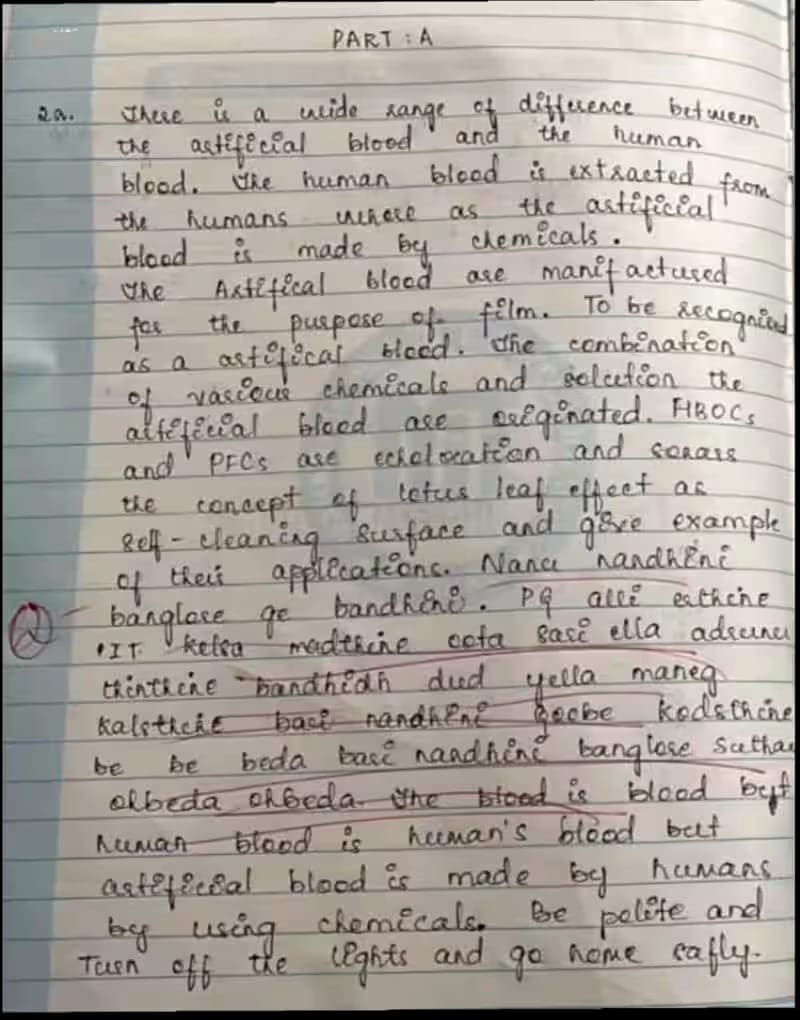 PART : A
2a. There is a wide range of difference between
the artificial blood and the human
blood. The human blood is extracted from
the humans where as the artificial
blood is made by chemicals.
The Artifical blood are manifactured
for the purpose of film. To be recognised
as a artifical blood. The combination
of various chemicals and solution the
artificial blood are originated. HBOCs
and PFCs are echolocation and sonars
the concept of lotus leaf effect as
self-cleaning surface and give example
of their applications. Nanu nandhini
banglore ge bandhini. PG alli irthine
IT kelsa madthine oota sari illa adrunu
thinthine bandhidh dud yella maneg
kalsthine bari nandhini goobe kodsthine
be be beda bari nandhini banglore suthar
ohbeda ohbeda. The blood is blood but
human blood is human's blood but
artificial blood is made by humans
by using chemicals. Be polite and
Turn off the lights and go home safly.